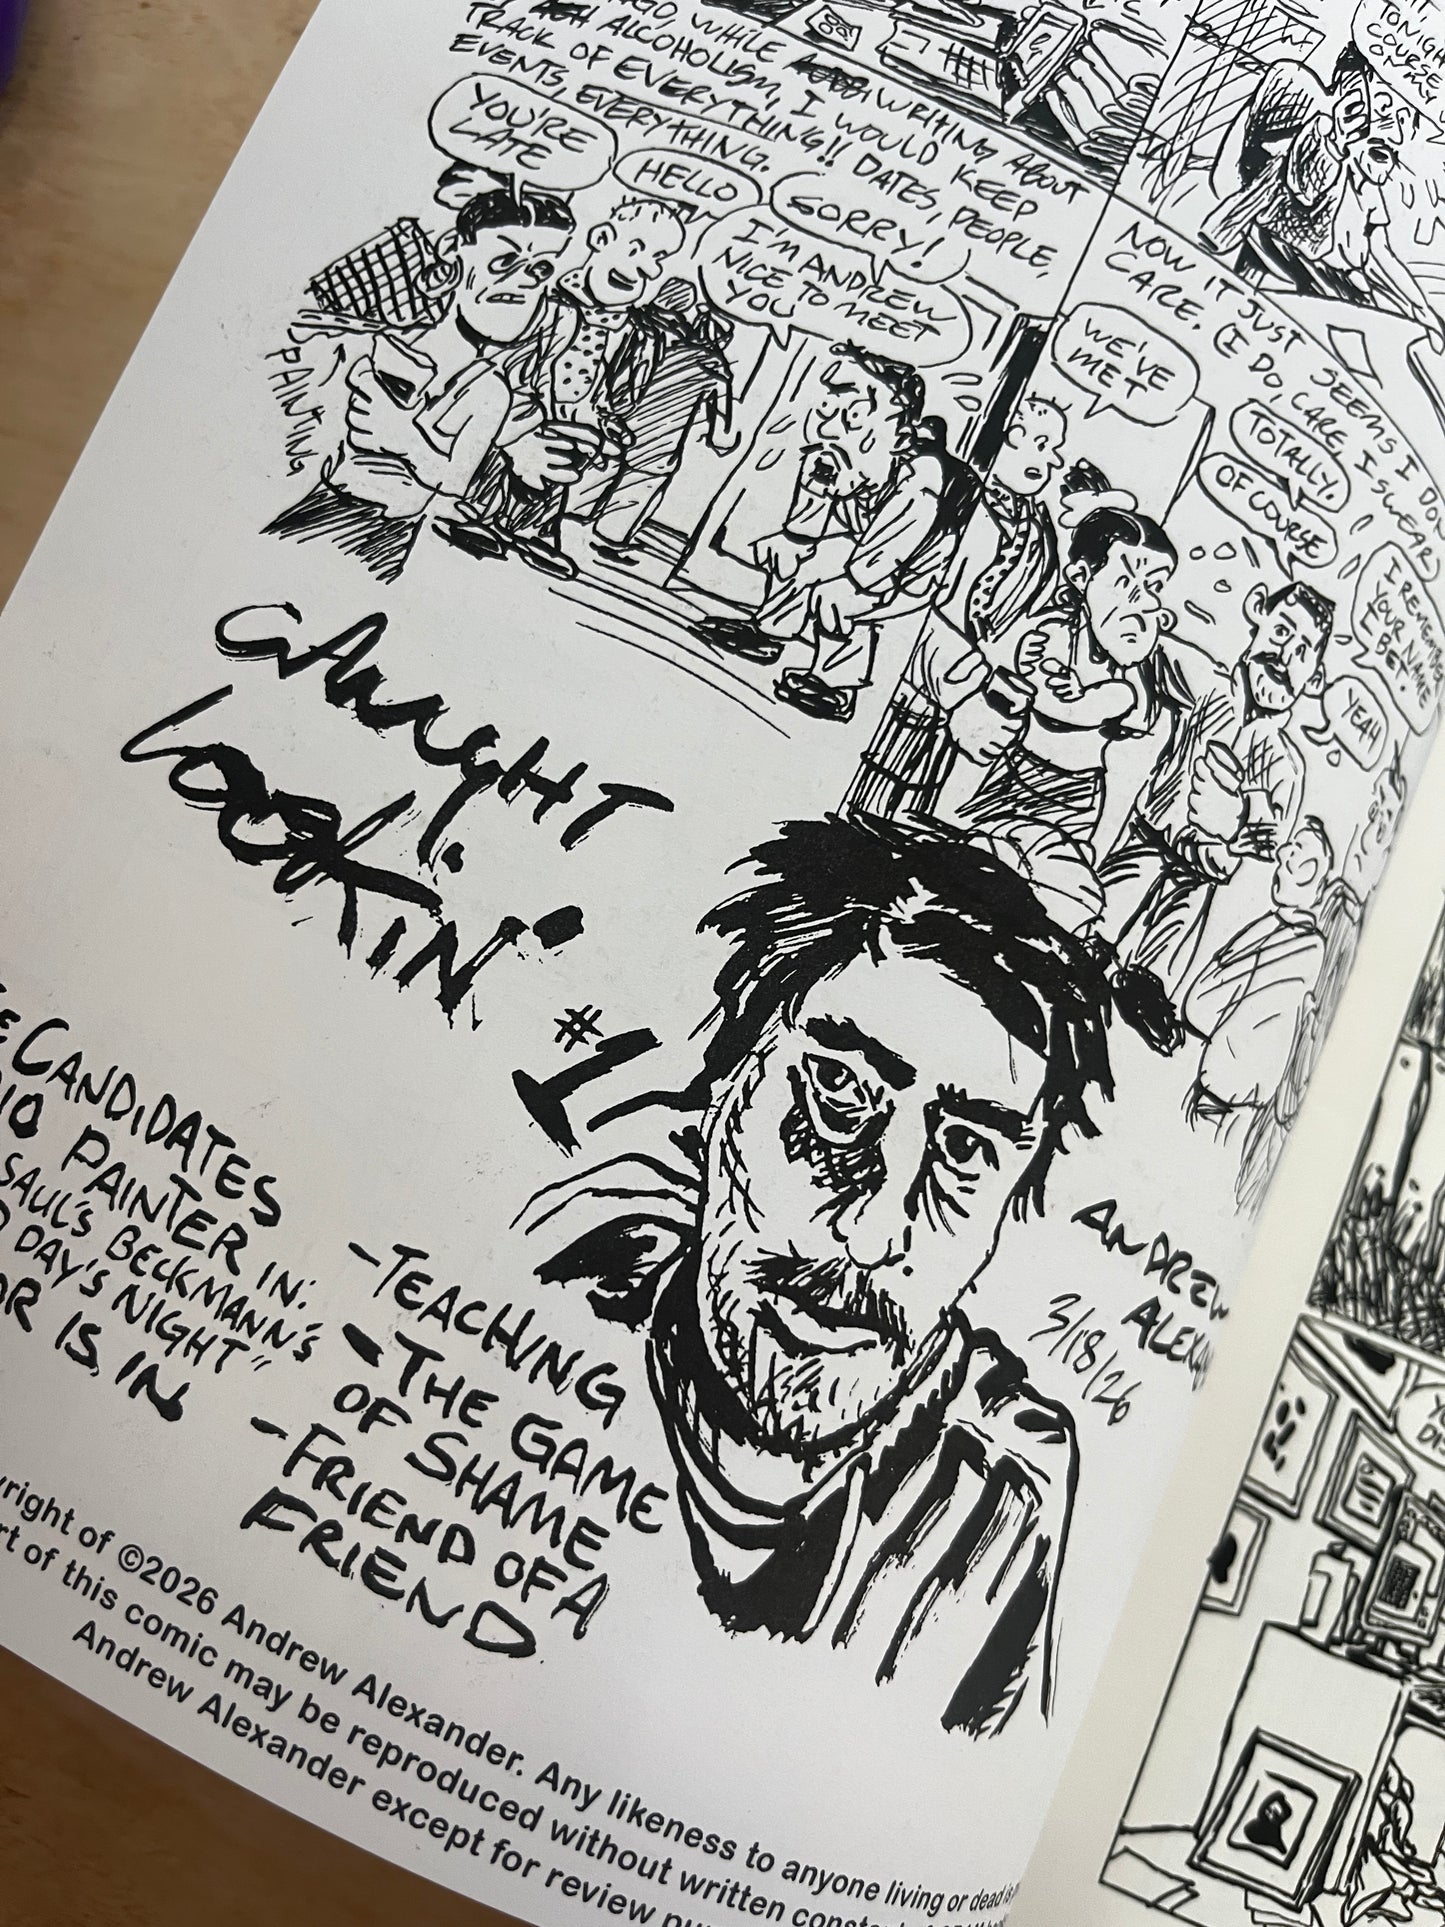 GO, WHILE WRITING ABOUT
ALCOHOLISM, I WOULD KEEP
TRACK OF EVERYTHING!! DATES, PEOPLE,
EVENTS, EVERYTHING.
YOU'RE
LATE
HELLO
SORRY!
I'M ANDREW
NICE TO MEET
YOU
PAINTING
TONIGHT
COURSE
ON MY
NOW IT JUST SEEMS I DON
CARE. (I DO, CARE, I SWEAR)
WE'VE
MET
TOTALLY.
OF COURSE
I REMEMBER
YOUR NAME
BET.
YEAH
CAUGHT
LOOKIN'
#1
E CANDIDATES
DIO PAINTER IN:
SAUL'S BECKMANN'S
DAY'S NIGHT"
OR IS IN
-TEACHING
-THE GAME
OF SHAME
-FRIEND OF A
FRIEND
ANDREW
ALEXA
3/18/26
yright of ©2026 Andrew Alexander. Any likeness to anyone living or dead is
rt of this comic may be reproduced without written
Andrew Alexander except for review